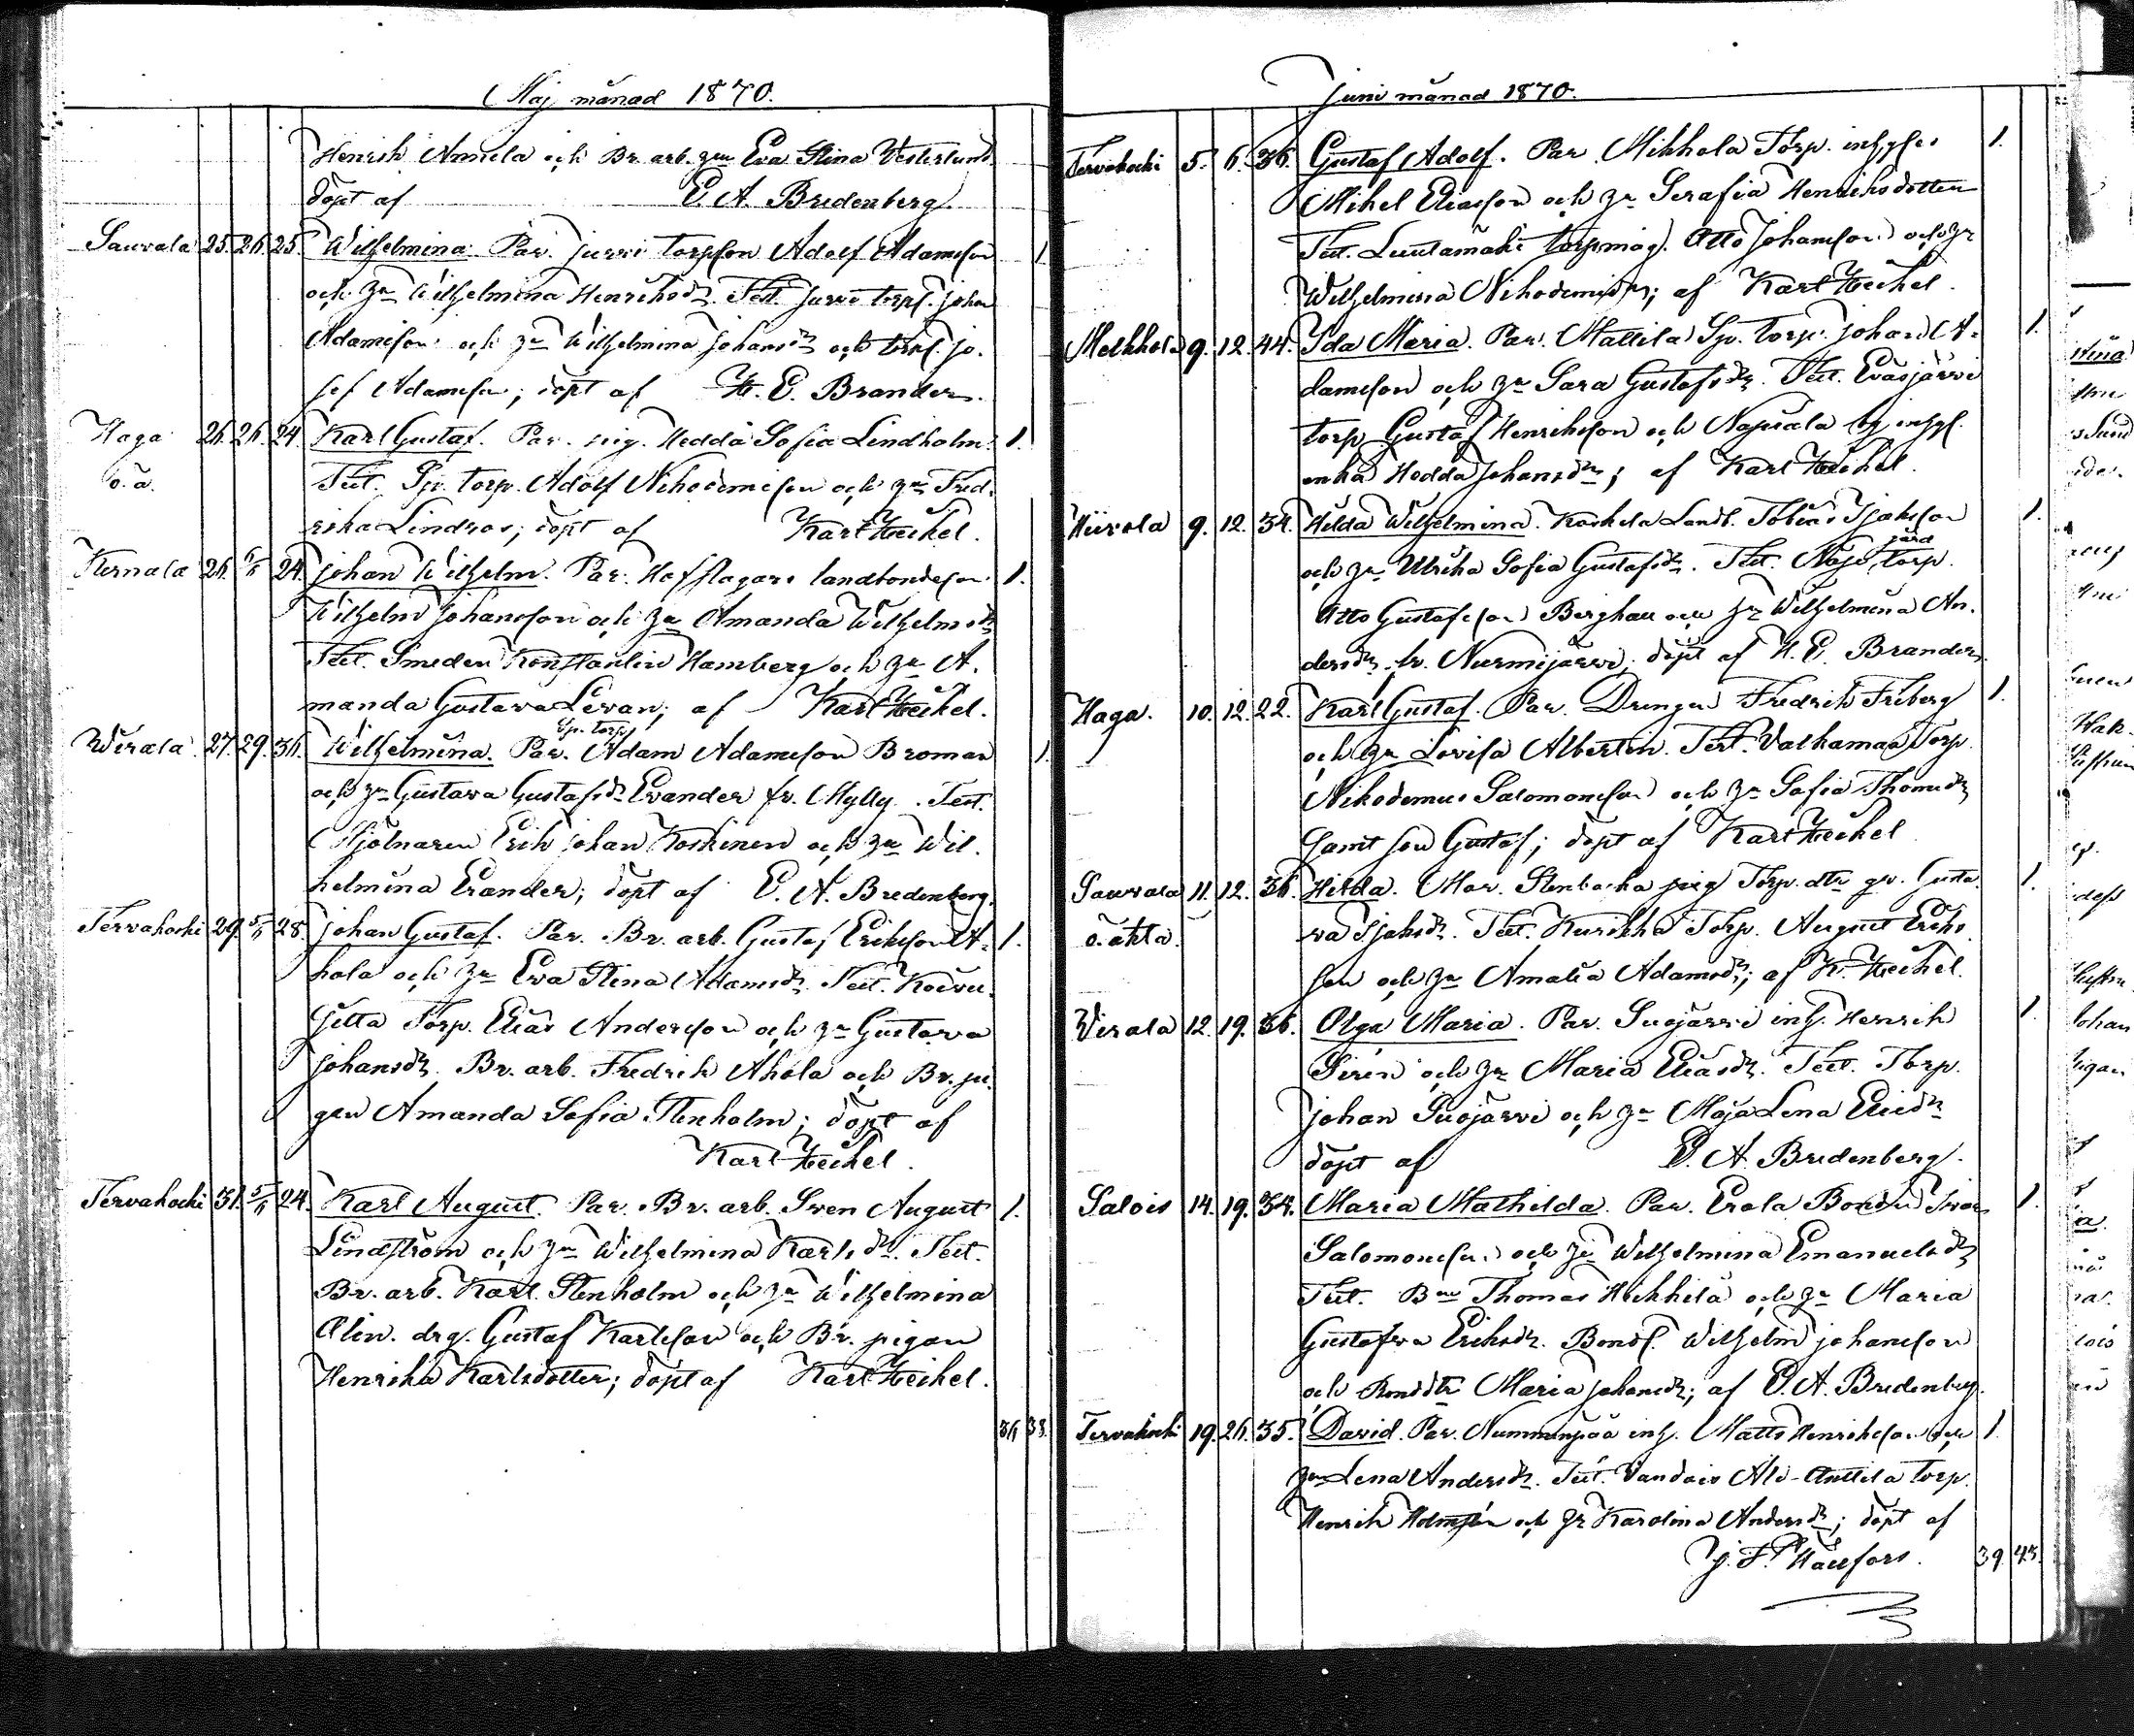 Maj månad 1870.
Henrik Annela och Br. arb. gen Eva Stina Vesterlund
döpt af E. A. Bredenberg.
Sauvala 25. 26. 25. Wilhelmina. Par. Jurri torpson Adolf Adamsson 1
och hn Wilhelmina Henriksdr. Test. Jurvo torps. Johan
Adamsson och hn Wilhelmina Johansdr och torps. Jo-
sef Adamsson; döpt af H. E. Brander.
Haga 26. 26. 24. Karl Gustaf. Par. pig. Hedda Sofia Lindholm. 1.
o. ä. Test. Sp. torp. Adolf Nikodemisson och hn Fred-
rika Lindroos; döpt af Karl Heikel.
Kernala 26. 5/6 24. Johan Wilhelm. Par. Hofslagare landbondeson 1.
Wilhelm Johansson och hn Amanda Wilhelmsdr
Test. Smeden Konstantin Hamberg och hn A-
manda Gustava Levan; af Karl Heikel.
Wirala 27. 29. 36. Wilhelmina. Par. Sp. torp. Adam Adamsson Broman 1.
och hn Gustava Gustafsdr Evander fr. Mylly. Test.
Mjölnaren Erik Johan Koskinen och hn Wil-
helmina Erander; döpt af E. A. Bredenberg.
Tervakoski 29. 5/6 28. Johan Gustaf. Par. Br. arb. Gustaf Eriksson A- 1.
hola och hn Eva Stina Adamsdr. Test. Koivu-
Torp. Elias Andersson och hn Gustava
Johansdr. Br. arb. Fredrik Ahola och Br. pi-
gan Amanda Sofia Stenholm; döpt af
Karl Heikel.
Tervakoski 31. 5/6 24. Karl August. Par. Br. arb. Sven August 1.
Lindström och hn Wilhelmina Karlsdr. Test.
Br. arb. Karl Stenholm och hn Wilhelmina
Alin. drg. Gustaf Karlsson och Br. pigan
Henrika Karlsdotter; döpt af Karl Heikel.
36 33.
Juni månad 1870.
Tervakoski 5. 6. 36. Gustaf Adolf. Par. Mikkola Torp. 1.
Mikel Eliasson och hn Serafia Henriksdotter
Test. Luutamäki torpmåg. Otto Johansson och hn
Wilhelmina Nikodemidr; af Karl Heikel.
Melkkola 9. 12. 44. Ida Maria. Par. Mattila Sp. torp. Johan A- 1.
damsson och hn Sara Gustafsdr. Test. Evasjärvi
torp Gustaf Henriksson och Napiala
enka Hedda Johansdr; af Karl Heikel.
Hiivola 9. 12. 34. Hilda Wilhelmina. Koskela Landb. Tobias Isaksson 1.
och hn Ulrika Sofia Gustafsdr. Test. torp.
Otto Gustafsson Berghall och hn Wilhelmina An-
dersdr. fr. Nurmijärvi; döpt af H. E. Brander.
Haga. 10. 12. 22. Karl Gustaf. Par. Drengen Fredrik Friberg 1.
och hn Lovisa Albertin. Test. Valkamaa Torp
Nikodemus Salomonsson och hn Sofia Thomasdr
samt son Gustaf; döpt af Karl Heikel
Sauvala 11. 12. 36. Hilda. Mor. Stenbacka pig Torp. dtr gr. Gusta- 1.
o. äkta. va Isaksdr. Test. Kurikka Torp. August Eriks-
son och hn Amalia Adamsdr; af K. Heikel.
Virala 12. 19. 36. Olga Maria. Par. Suojärvi inh. Henrik 1.
Sirén och hn Maria Eliasdr. Test. Torp.
Johan Suojärvi och hn Maja Lena Eliedr
döpt af E. A. Bredenberg.
Salois 14. 19. 34. Maria Mathilda. Par. Erola Bonden Ivar 1.
Salomonsson och hn Wilhelmina Emanuelsdr
Test. Bne Thomas Heikkilä och hn Maria
Gustafva Eriksdr. Bonds. Wilhelm Johansson
och Bonddtr Maria Johansdr; af E. A. Bredenberg.
Tervakoski 19. 26. 35. David. Par. Nummenpää inh. Matts Henriksson och 1.
hn Lena Andersdr. Test. Vandais Ali-Anttila torp.
Henrik Holmstén och hn Karolina Andersdr; döpt af
J. F. Hällfors. 39. 43.